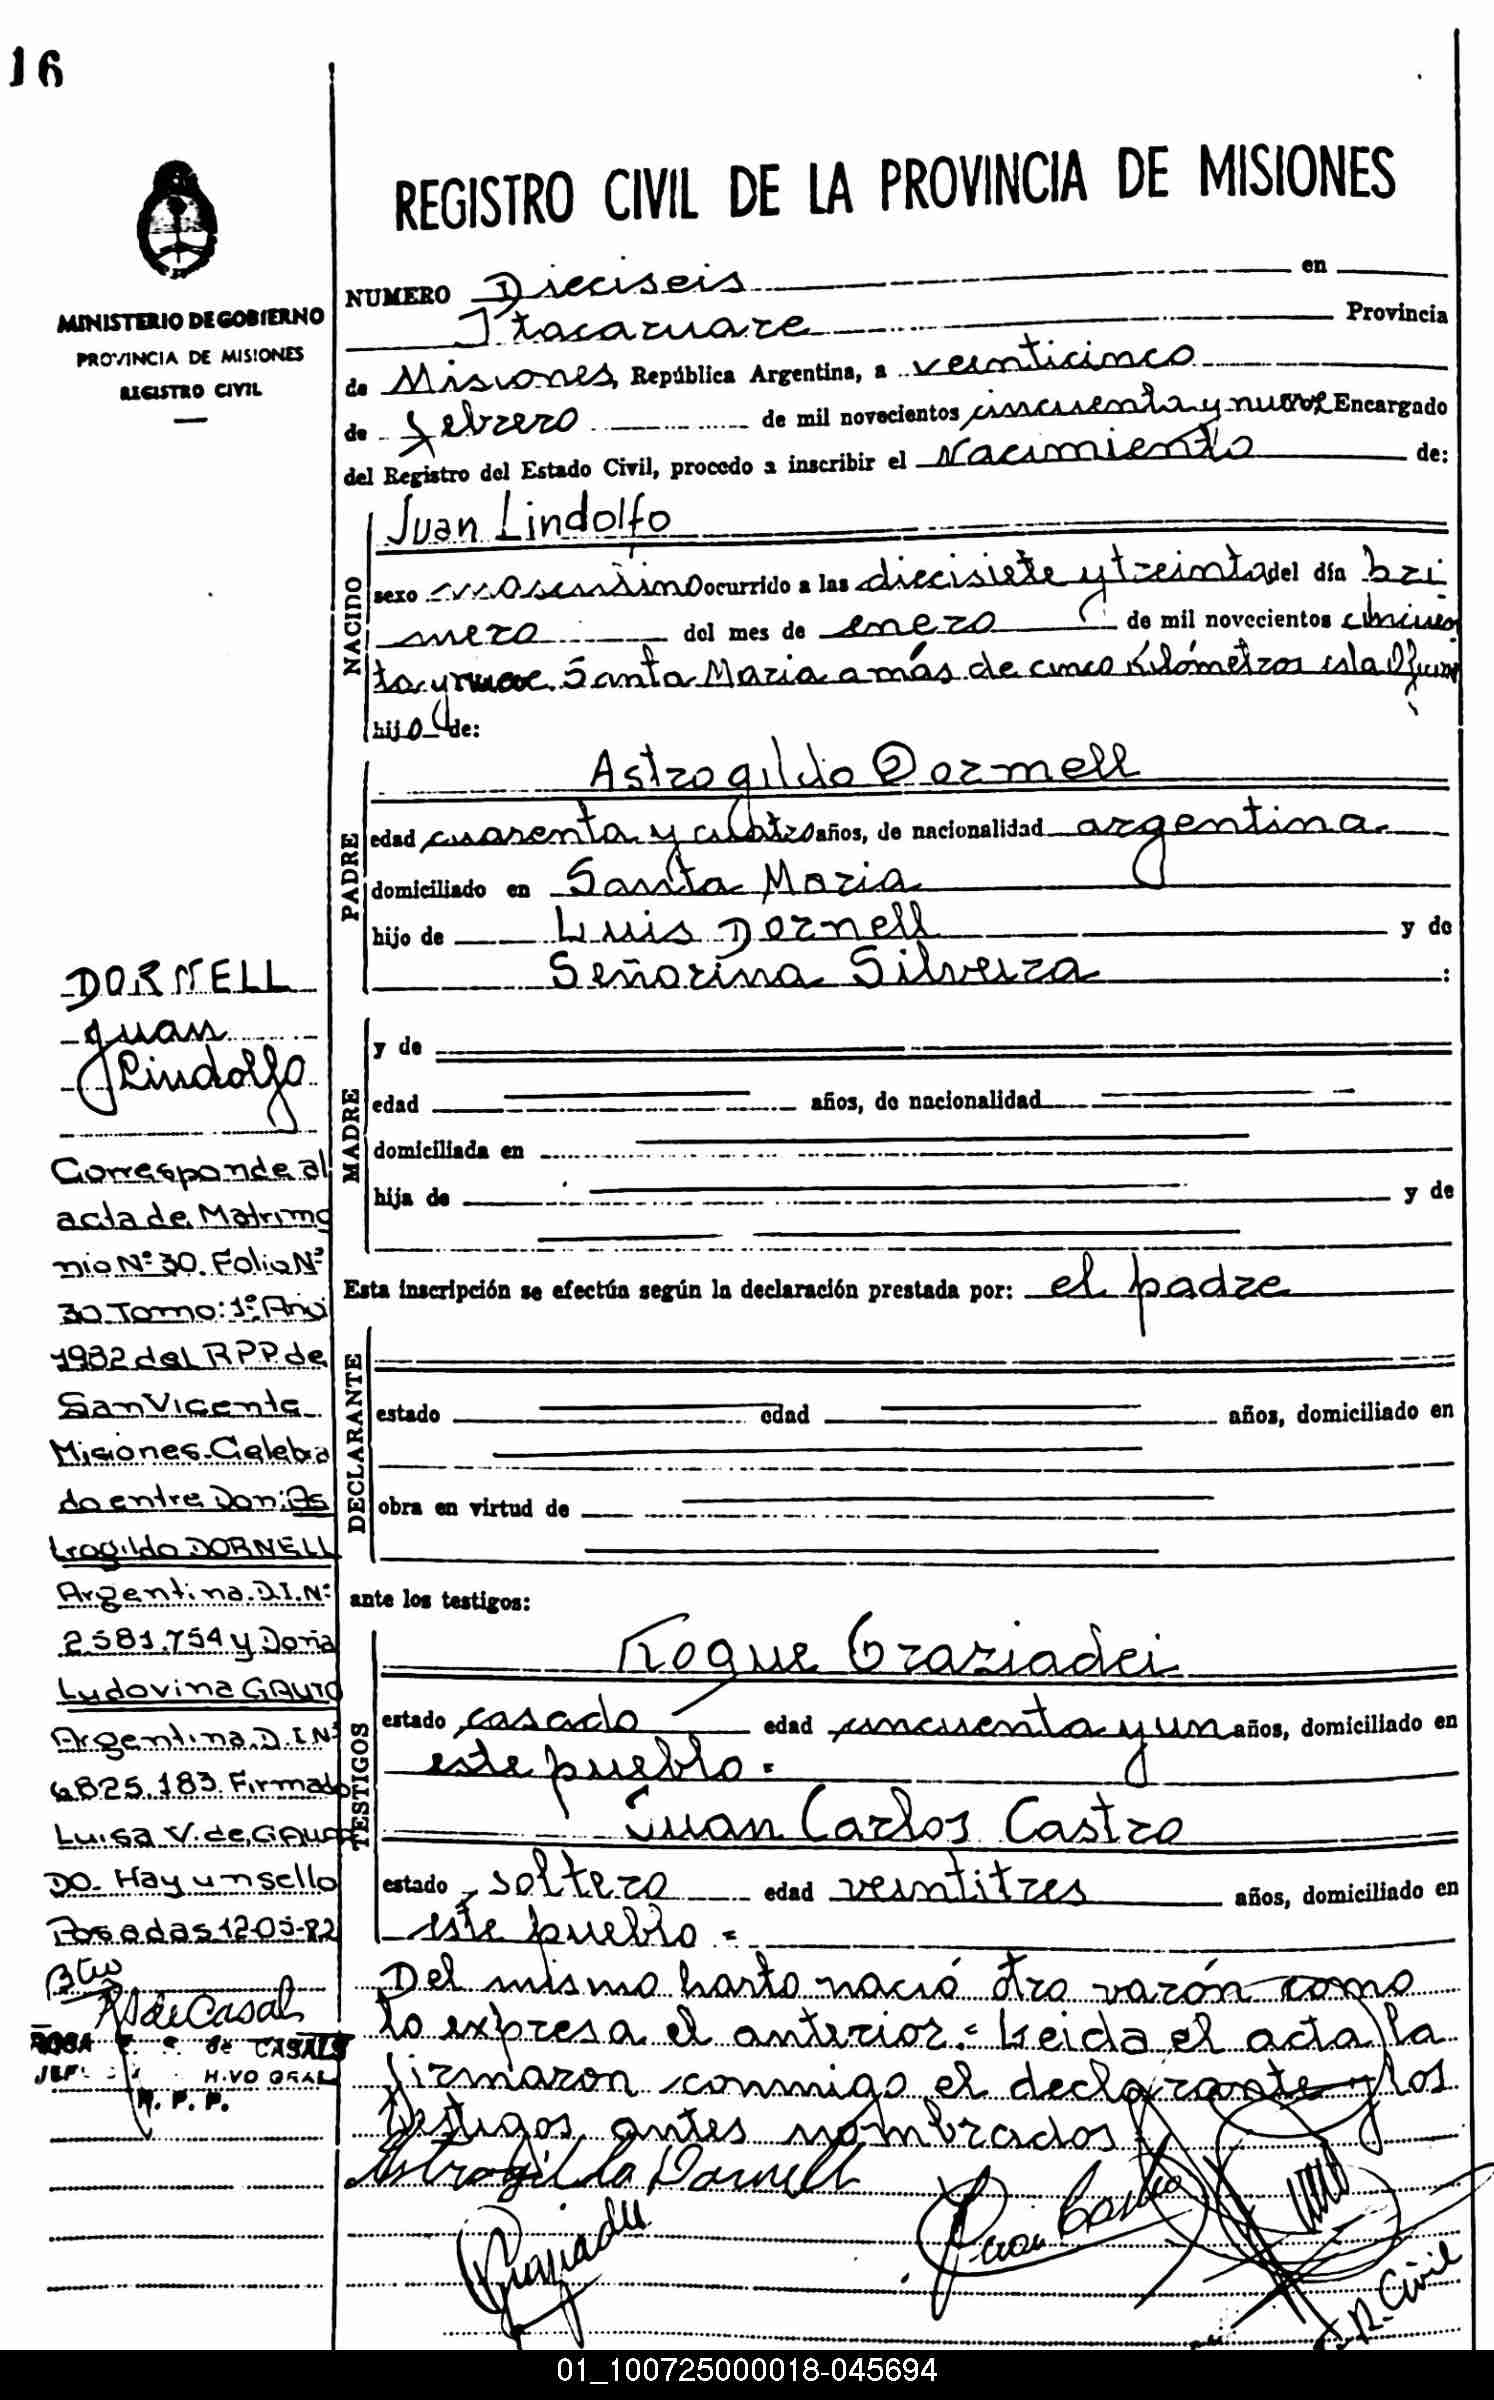 16
REGISTRO CIVIL DE LA PROVINCIA DE MISIONES
MINISTERIO DE GOBIERNO
PROVINCIA DE MISIONES
REGISTRO CIVIL
NUMERO Dieciseis en
Itacaruare Provincia
de Misiones, República Argentina, a veinticinco
de febrero de mil novecientos cincuenta y nueve Encargado
del Registro del Estado Civil, procedo a inscribir el Nacimiento de:
NACIDO
Juan Lindolfo
sexo masculino ocurrido a las diecisiete y treinta del día pri
mero del mes de enero de mil novecientos cincuen
ta y nueve Santa Maria a más de cinco Kilómetros esta Oficina
hijo de:
PADRE
Astrogildo Dornell
edad cuarenta y cuatro años, de nacionalidad argentina
domiciliado en Santa Maria
hijo de Luis Dornell y de
Señorina Silveira :
MADRE
y de
edad años, de nacionalidad
domiciliada en
hija de y de
Esta inscripción se efectúa según la declaración prestada por: el padre
DECLARANTE
estado edad años, domiciliado en
obra en virtud de
ante los testigos:
TESTIGOS
Roque Graziadei
estado casado edad cincuenta y un años, domiciliado en
este pueblo =
Juan Carlos Castro
estado soltero edad veintitres años, domiciliado en
este pueblo =
Del mismo parto nació otro varón como
lo expresa el anterior = Leida el acta la
firmaron conmigo el declarante y los
testigos antes nombrados
Astrogildo Dornell
Graziadei
Juan Castro
R. Civil
DORNELL
Juan
Lindolfo
Corresponde al
acta de Matrimo
nio Nº 30. Folio Nº
30 Tomo: 1º Año
1982 del RPP de
San Vicente
Misiones. Celebra
do entre Don: As
trogildo DORNELL
Argentina. D.I. Nº
2.581.754 y Doña
Ludovina GAUTO
Argentina. D.I Nº
6825.183. Firmado
Luisa V. de
DO. Hay un sello
Posadas 12-05-82
R de Casals
ROSA de CASALS
R. P. P.
01_100725000018-045694